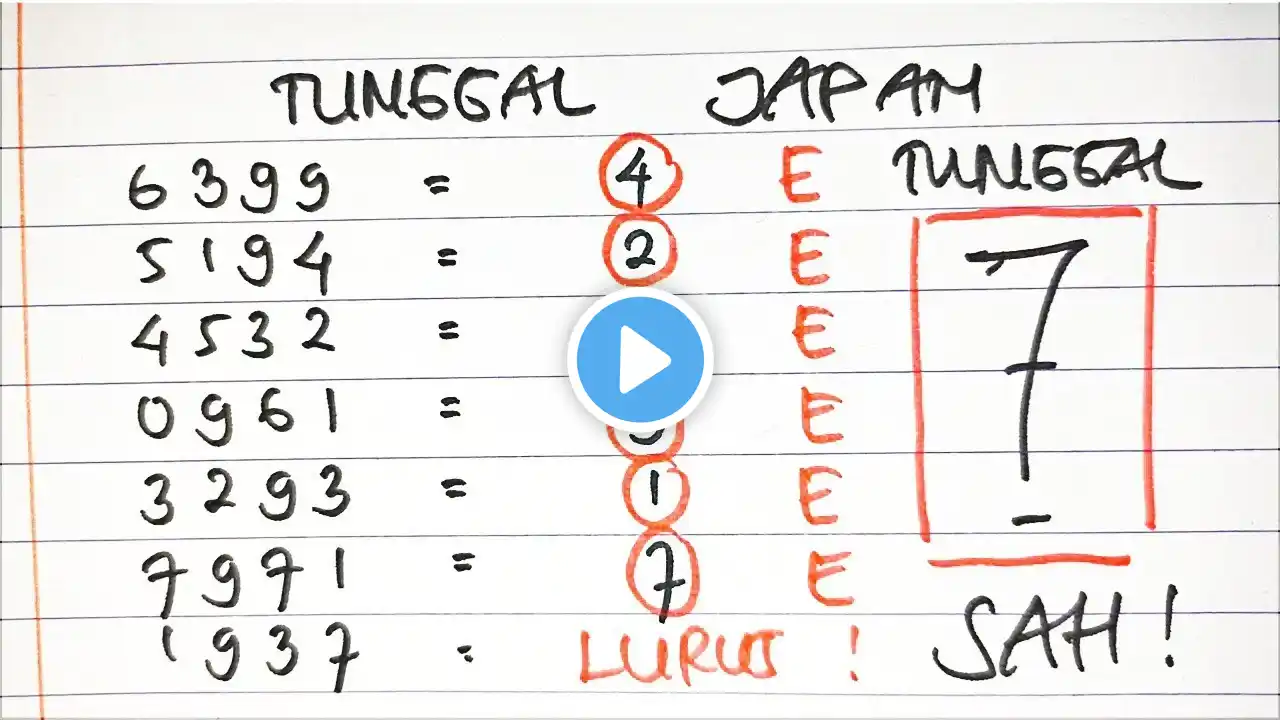 TUNGGAL JAPAN
6399 = 4 E TUNGGAL
5194 = 2 E
4532 = E 7
0961 = E
3293 = 1 E
7971 = 7 E
1937 = LURUS ! SAH !